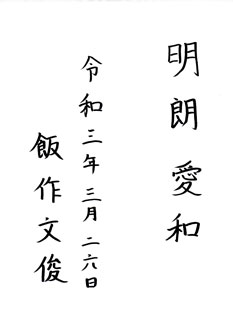 明朗愛和
令和三年三月二六日
飯作文俊